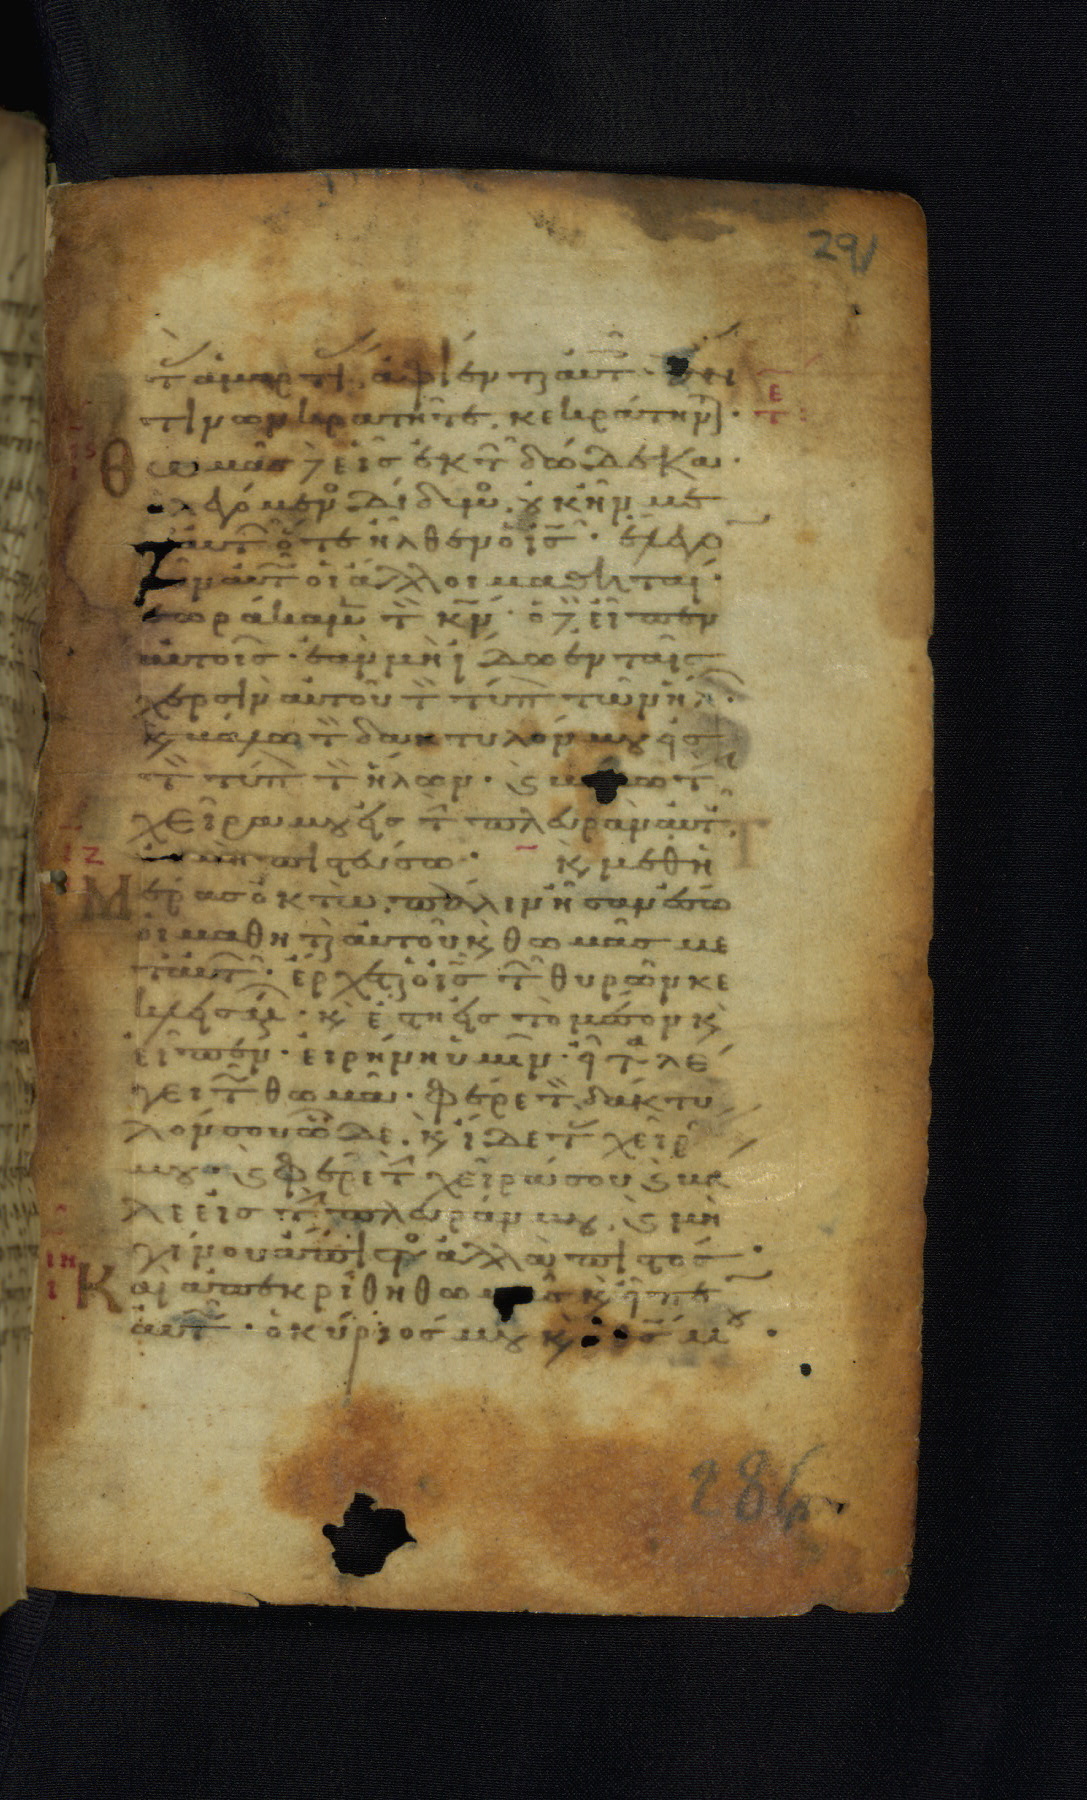 291
τ ἁμαρτι, ἀφίενται αὐτ
τινων κρατῆτε. κεκράτην
Θωμᾶς δὲ εἷς ἐκ τ δώδεκα.
ὁ λεγόμεν Δίδυμ. οὐκ ἦν με
τ αὐτ ὅτε ἦλθεν ὁ ις. ἔλεγο
ν αὐτ οἱ ἄλλοι μαθηταί.
ἑωράκαμ τ κν. ὁ δὲ εἶπεν
αὐτοῖς. ἐὰν μὴ ἴδω ἐν ταῖς
χερσὶν αὐτοῦ τ τύπ τῶν ἥλ.
κ βάλω τ δακτυλόν μου εἰς
τ τύπ τ ἥλων. κ βάλω τ
χεῖρα μου εἰς τ πλευρὰν αὐτ.
οὐ μὴ πιστεύσω. κ μεθ ἡ
Μέρας ὀκτὼ, πάλιν ἦσαν ἔσω
οἱ μαθηταὶ αὐτοῦ κ θωμᾶς με
τ αὐτ. ἔρχεται ὁ ις τ θυρῶν κε
κλεισμ. κ ἔστη εἰς τὸ μέσον κ
εἶπεν. εἰρήνη ὑμῖν. εἶτα λέ
γει τ θωμᾶ. φέρε τ δάκτυ
λόν σου ὧδε. κ ἴδε τ χεῖρ
μου. κ φέρε τ χεῖρά σου κ βα
λε εἰς τ πλευράν μου. κ μὴ
γίνου ἄπιστ ἀλλὰ πιστός.
Καὶ ἀπεκρίθη θωμᾶς κ εἶπε
αὐτ. ὁ κύριός μου κ ὁ θς μου.
286